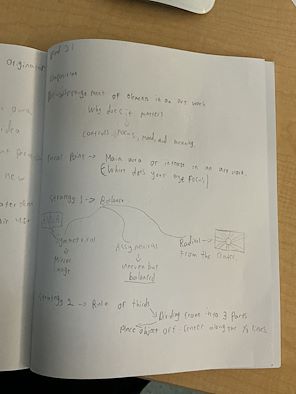 Composition
arrangement of elements in an art work
Why does it matter?
controls focus, mood, and meaning
Focal Point → Main area of interest in an art work
(Where does your eye focus)
Strategy 1 → Balance
Symmetrical
Mirror
Image
Asymmetrical
uneven but
balanced
Radial →
From the center
Strategy 2 → Rule of thirds
Dividing frame into 3 parts
Place object off-center along the 1/3 lines
Origin
own
idea
new